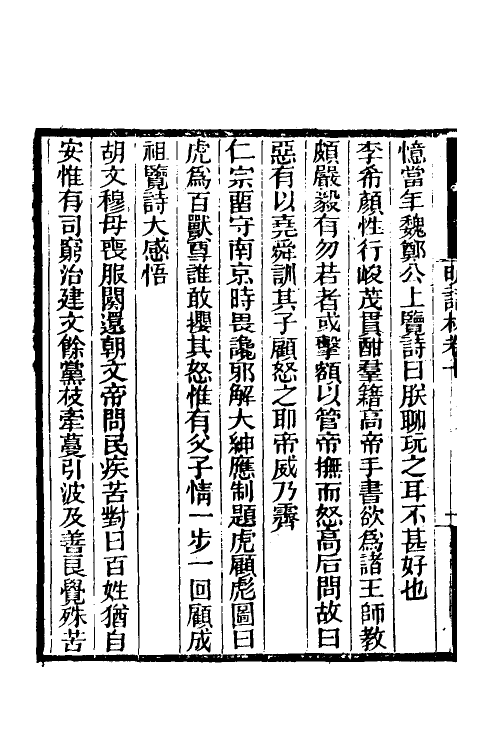 憶當年魏鄭公上覽詩曰朕聊玩之耳不甚好也
李希顏性行峻茂貫酣羣籍高帝手書欲爲諸王師教
頗嚴毅有勿若者或擊額以管帝撫而怒高后問故曰
惡有以堯舜訓其子顧怒之耶帝威乃霽
仁宗畱守南京時畏讒邪解大紳應制題虎顧彪圖曰
虎爲百獸尊誰敢攖其怒惟有父子情一步一回顧成
祖覽詩大感悟
胡文穆母喪服闋還朝文帝問民疾苦對曰百姓猶自
安惟有司窮治建文餘黨枝牽蔓引波及善良覺殊苦